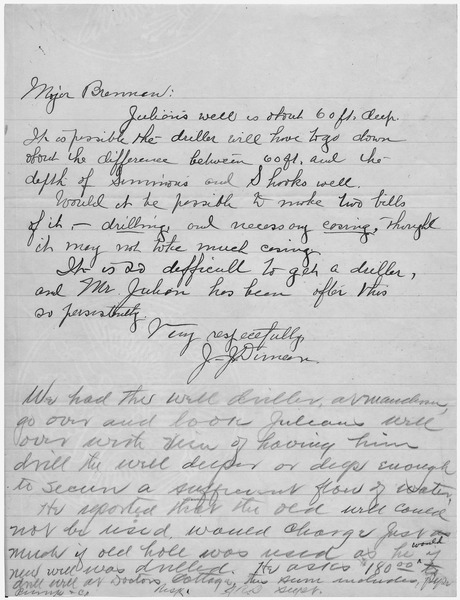 Major Brennan:
Julian's well is about 60 ft. deep.
It is possible the driller will have to go down
about the difference between 60 ft. and the
depth of Simmons and Shooks well.
Would it be possible to make two bills
of it – drilling, and necessary casing, though
it may not take much casing.
It is so difficult to get a driller,
and Mr. Julian has been after this
so persistently.
Very respectfully,
J. J. Duncan.
We had the well driller, at
go over and look Julians well
over with view of having him
drill the well deeper or deep enough
to secure a sufficient flow of water,
He reported that the old well could
not be used, would charge just as
much if old hole was used as he would if
new well was drilled. He asks $180.00 to
drill well at Doctors Cottage, this sum includes, pipe
pump &c. Supt.